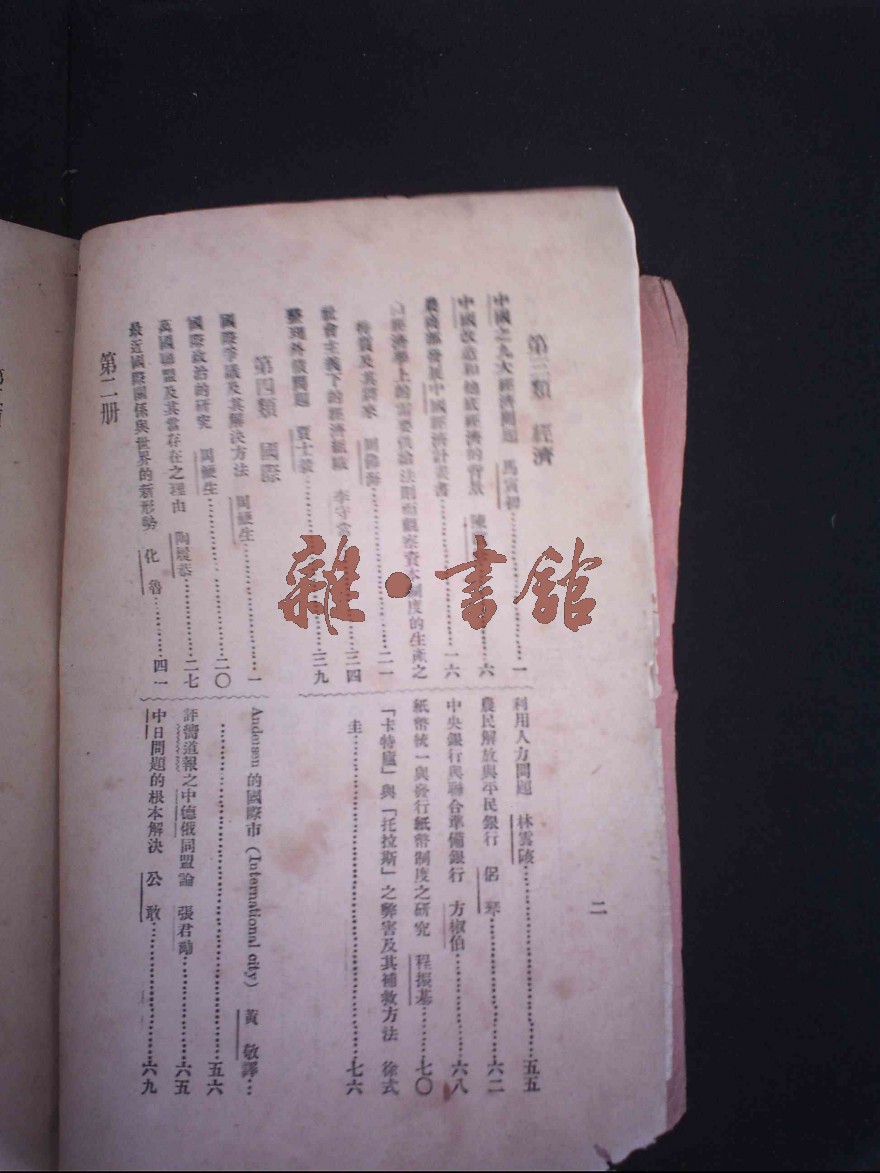 二
第三類 經濟
中國之九大經濟問題 馬寅初……一
中國改造和他底經濟的背景 陳……六
農商部發展中國經濟計畫書……一六
經濟學上的需要供給法則而觀察資本制度的生產之
特質及其 周佛海……二一
社會主義下的經濟組織 李守常……三四
整理外債問題 賈士毅……三九
利用人力問題 林雲陔……五五
農民解放與平民銀行 侶琴……六二
中央銀行與聯合準備銀行 方椒伯……六八
紙幣統一與發行紙幣制度之研究 程振基……七〇
「卡特廬」與「托拉斯」之弊害及其補救方法 徐式
圭……七六
第四類 國際
國際爭議及其解決方法 周鯁生……一
國際政治的研究 周鯁生……二〇
萬國聯盟及其當存在之理由 陶履恭……二七
最近國際關係與世界的新形勢 化魯……四一
Anderson 的國際市 (International city) 黃敬譯…
……五六
評衛道報之中德俄同盟論 張君勱……六五
中日問題的根本解決 公敢……六九
第二册
雜·書館